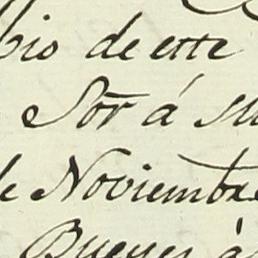 bio de este
Sor á su
de Noviembre
Bueyes á